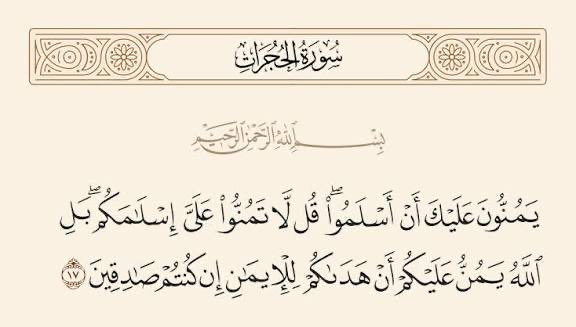 سُورَةُ الحُجُرَاتِ
بِسْمِ اللَّهِ الرَّحْمَٰنِ الرَّحِيمِ
يَمُنُّونَ عَلَيْكَ أَنْ أَسْلَمُوا۟ ۖ قُل لَّا تَمُنُّوا۟ عَلَىَّ إِسْلَـٰمَكُم ۖ بَلِ
ٱللَّهُ يَمُنُّ عَلَيْكُمْ أَنْ هَدَىٰكُمْ لِلْإِيمَـٰنِ إِن كُنتُمْ صَـٰدِقِينَ ١٧